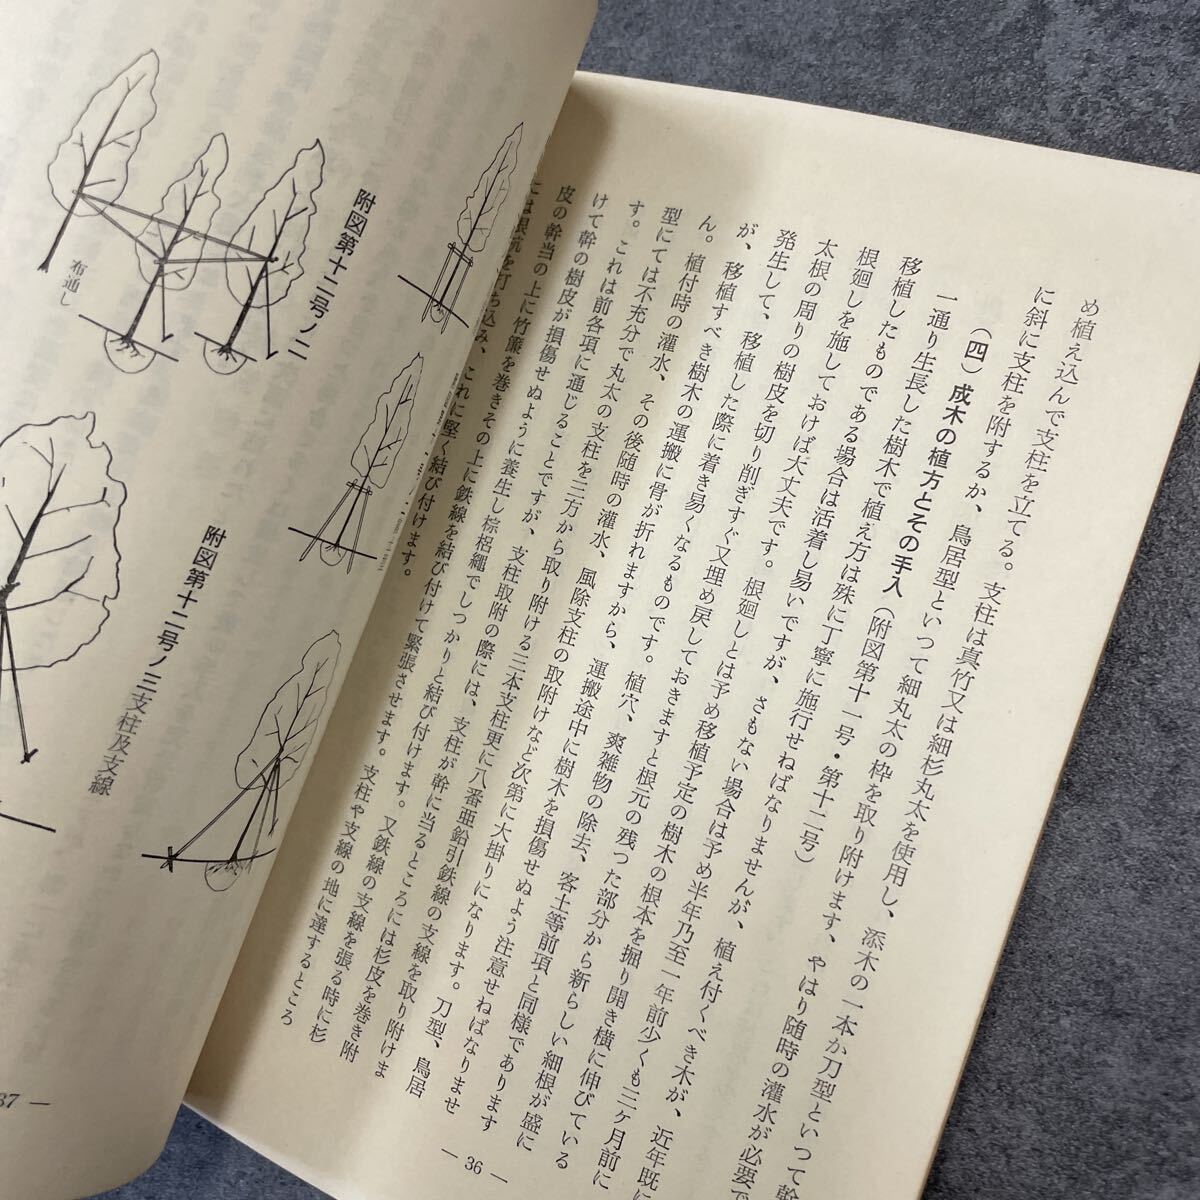 め植え込んで支柱を立てる。支柱は真竹又は細杉丸太を使用し、添木の一本か刀型といつて幹
に斜に支柱を附するか、鳥居型といつて細丸太の枠を取り附けます、やはり随時の灌水が必要で
(四) 成木の植方とその手入 (附図第十一号・第十二号)
一通り生長した樹木で植え方は殊に丁寧に施行せねばなりませんが、植え付くべき木が、近年既に
移植したものである場合は活着し易いですが、さもない場合は予め半年乃至一年前少くも三ヶ月前に
根廻しを施しておけば大丈夫です。根廻しとは予め移植予定の樹木の根本を掘り開き横に伸びている
太根の周りの樹皮を切り削ぎすぐ又埋め戻しておきますと根元の残つた部分から新らしい細根が盛に
発生して、移植した際に着き易くなるものです。植穴、爽雑物の除去、客土等前項と同様であります
が、移植すべき樹木の運搬に骨が折れますから、運搬途中に樹木を損傷せぬよう注意せねばなりませ
ん。植付時の灌水、その後随時の灌水、風除支柱の取附けなど次第に大掛りになります。刀型、鳥居
型にては不充分で丸太の支柱を三方から取り附ける三本支柱更に八番亜鉛引鉄線の支線を取り附けま
す。これは前各項に通じることですが、支柱取附の際には、支柱が幹に当るところには杉皮を巻き附
けて幹の樹皮が損傷せぬように養生し棕梠縄でしつかりと結び付けます。又鉄線の支線を張る時に杉
皮の幹当の上に竹簾を巻きその上に鉄線を結び付けて緊張させます。支柱や支線の地に達するところ
には根杭を打ち込み、これに堅く結び付けます。
— 36 —
附図第十二号ノ二
布通し
附図第十二号ノ三支柱及支線
37 —